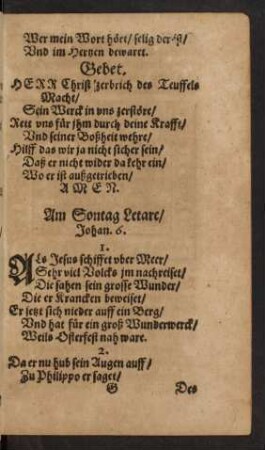 Wer mein Wort hört/ selig der ist/
Vnd im Hertzen bewaret.
Gebet.
HERR Christ/ zerbrich des Teuffels
Macht/
Sein Werck in vns zerstöre/
Rett vns für jhm durch deine Krafft/
Vnd seiner Boßheit wehre/
Hilff das wir ja nicht sicher sein/
Daß er nicht wider da kehr ein/
Wo er ist außgetrieben/
A M E N.
Am Sontag Letare/
Johan. 6.
1.
ALs Jesus schiffet vber Meer/
Sehr viel Volcks jm nachreiset/
Die sahen sein grosse Wunder/
Die er Krancken beweiset/
Er setzt sich nieder auff ein Berg/
Vnd hat für ein groß Wunderwerck/
Weils Osterfest nah ware.
2.
Da er nu hub sein Augen auff/
Zu Philippo er saget/
G Des